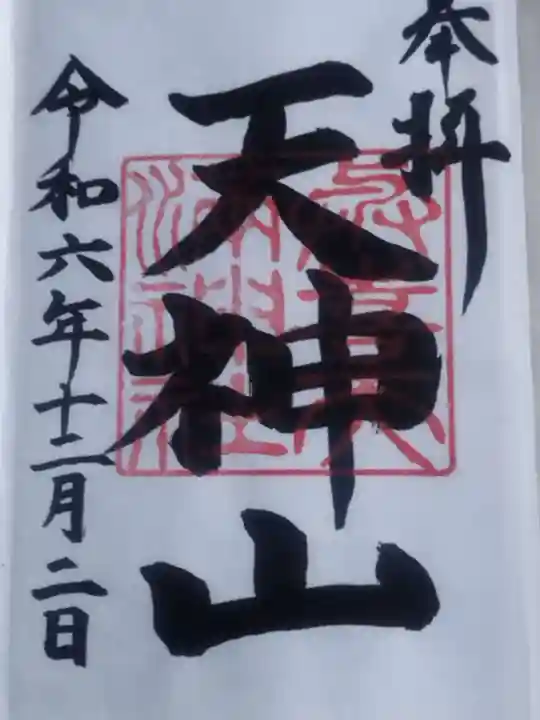 奉拝
天神山
令和六年十二月二日